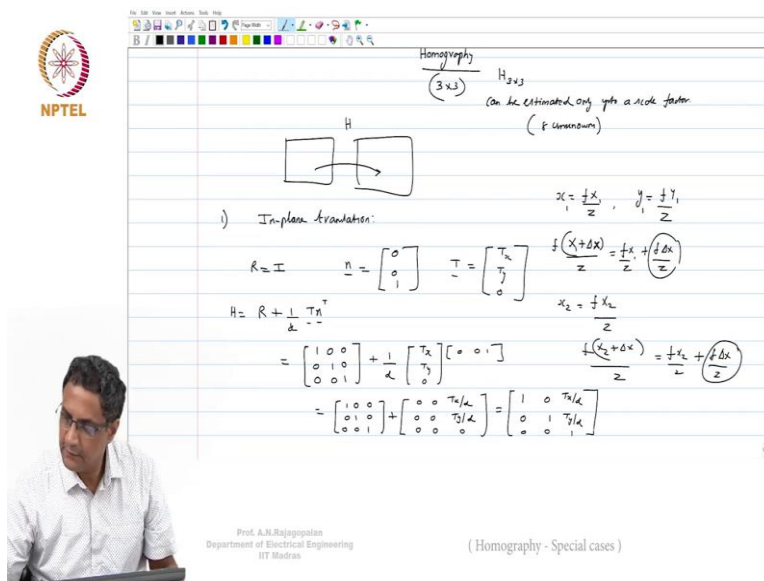 File Edit View Insert Actions Tools Help
Page Width
B I
NPTEL
Homography
(3x3) H3x3
can be estimated only upto a scale factor
(8 unknowns)
H
x1 = fX1/Z , y1 = fY1/Z
1) In-plane translation:
f(X1+ΔX)/Z = fX1/Z + fΔX/Z
R = I n = [0 0 1] T = [Tx Ty 0]
x2 = fX2/Z
H = R + 1/d T n^T
f(X2+ΔX)/Z = fX2/Z + fΔX/Z
= [1 0 0; 0 1 0; 0 0 1] + 1/d [Tx Ty 0] [0 0 1]
= [1 0 0; 0 1 0; 0 0 1] + [0 0 Tx/d; 0 0 Ty/d; 0 0 0] = [1 0 Tx/d; 0 1 Ty/d; 0 0 1]
Prof. A.N.Rajagopalan
Department of Electrical Engineering
IIT Madras
( Homography - Special cases )